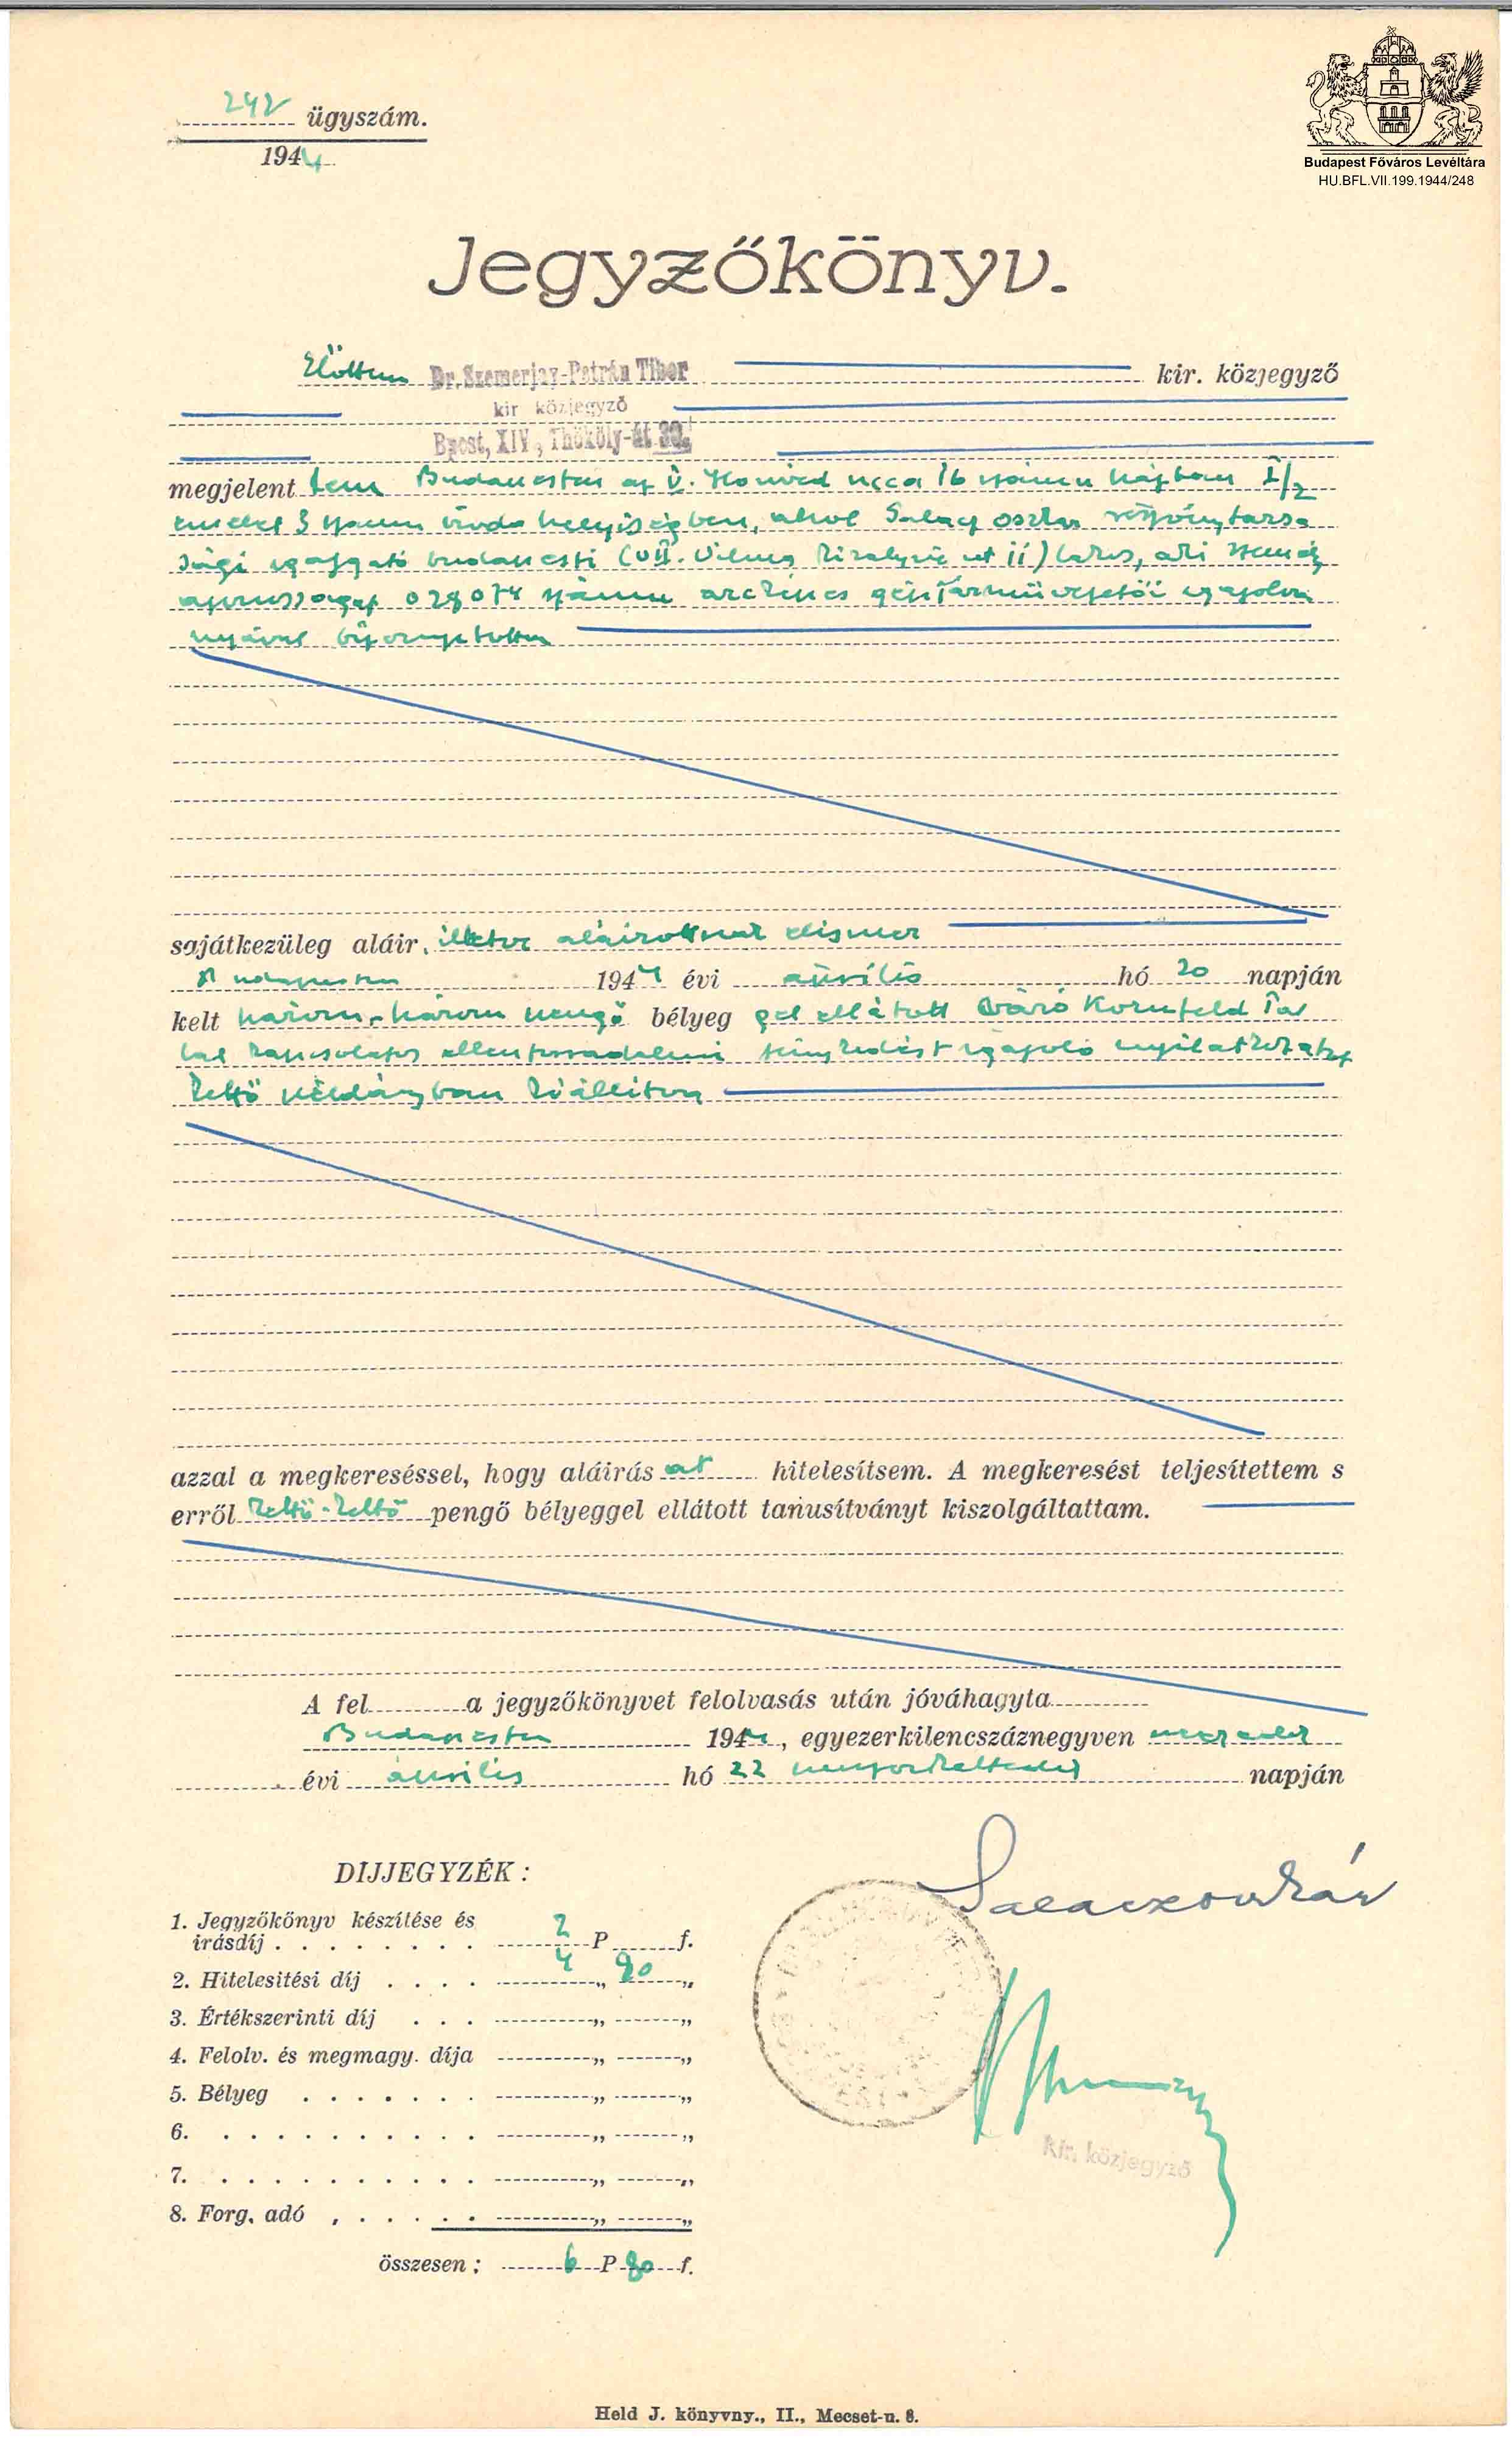 242 ügyszám.
1944
Budapest Főváros Levéltára
HU.BFL.VII.199.1944/248
Jegyzőkönyv.
Előttem Dr. Szemerjay-Petrán Tibor kir. közjegyző
kir közjegyző
Bpest, XIV., Thököly-út
megjelent tem Budapesten az V. Honvéd ucca 16 számu házban I/2
emelet 3 számu iroda helyiségben, ahol oszkár részvénytársa
sági igazgató budapesti (VII. Vilma királynő ut 11) lakos, aki személy
azonosságát 028074 számu arcképes gépjárművezetői igazolvá
nyával bizonyitotta
sajátkezüleg aláir, illetve aláirásának elismer
Budapesten 1944 évi április hó 20 napján
kelt három-három pengő bélyeg gel ellátott Báró Kornfeld
kapcsolatos ellenforradalmi ténykedést igazoló nyilatkozatot
kettő példányban kiállitva
azzal a megkereséssel, hogy aláirás át hitelesítsem. A megkeresést teljesítettem s
erről kettő-kettő pengő bélyeggel ellátott tanusítványt kiszolgáltattam.
A fel a jegyzőkönyvet felolvasás után jóváhagyta
Budapesten 1944, egyezerkilencszáznegyven negyedik
évi április hó 22 huszonkettedik napján
DIJJEGYZÉK:
1. Jegyzőkönyv készítése és
irásdíj 2 P f.
2. Hitelesitési díj 4 „ 80 „
3. Értékszerinti díj „ „
4. Felolv. és megmagy. díja „ „
5. Bélyeg „ „
6. „ „
7. „ „
8. Forg. adó „ „
összesen: 6 P 80 f.
kir. közjegyző
Held J. könyvny., II., Mecset-u. 8.